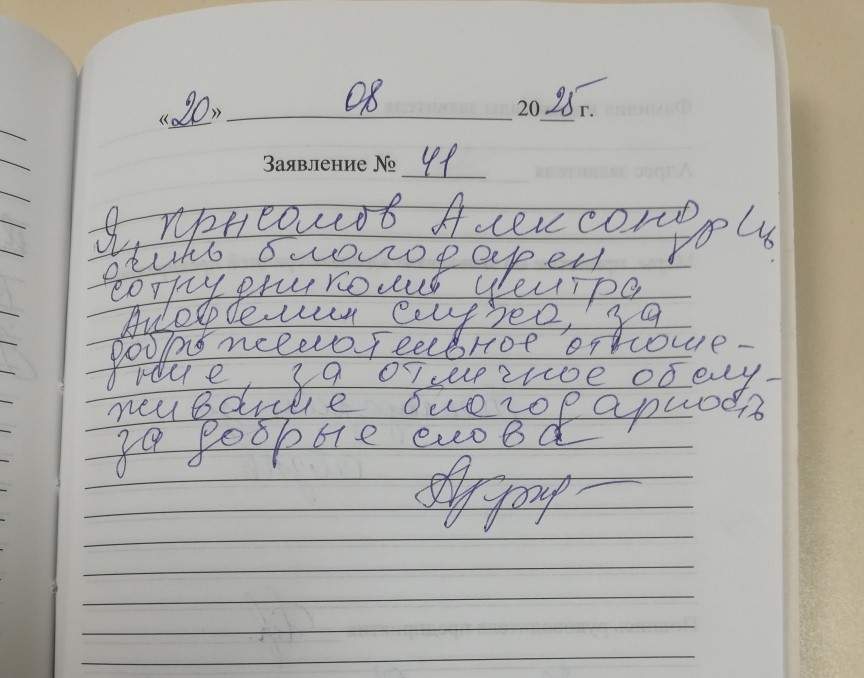 «20» 08 2025 г.
Заявление № 41
Я, Александр
очень благодарен
сотрудникам центра
Академия слуха, за
доброжелательное отноше-
ние, за отличное обслу-
живание благодарность
за добрые слова